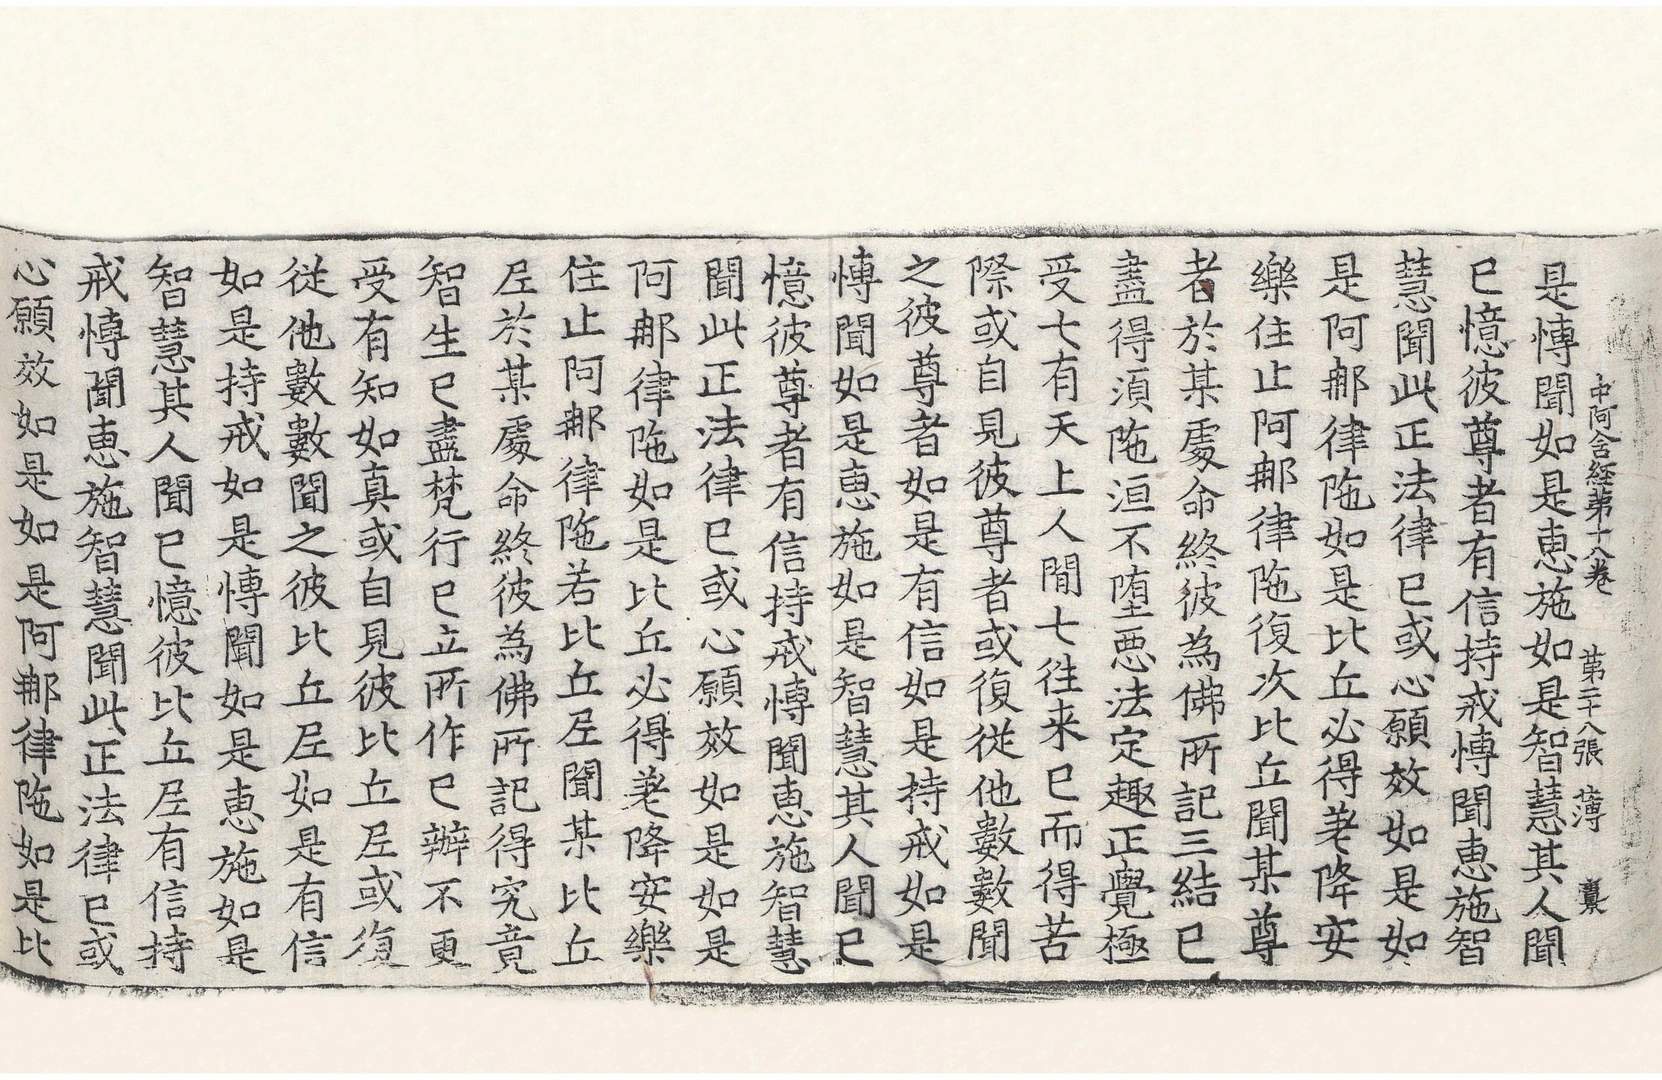 中阿含経第十八卷　第二十八張　薄
是愽聞如是恵施如是智慧其人聞
已憶彼尊者有信持戒愽聞恵施智
慧聞此正法律已或心願效如是如
是阿那律陁如是比丘必得差降安
樂住止阿那律陁復次比丘聞某尊
者於某處命終彼為佛所記三結已
盡得湏陁洹不墮惡法定趣正覺極
受七有天上人間七往来已而得苦
際或自見彼尊者或復從他數數聞
之彼尊者如是有信如是持戒如是
愽聞如是恵施如是智慧其人聞已
憶彼尊者有信持戒愽聞恵施智慧
聞此正法律已或心願效如是如是
阿那律陁如是比丘必得差降安樂
住止阿那律陁若比丘尼聞某比丘
尼於某處命終彼為佛所記得究竟
智生已盡梵行已立所作已辦不更
受有知如真或自見彼比丘尼或復
從他數數聞之彼比丘尼如是有信
如是持戒如是愽聞如是恵施如是
智慧其人聞已憶彼比丘尼有信持
戒愽聞恵施智慧聞此正法律已或
心願效如是如是阿那律陁如是比